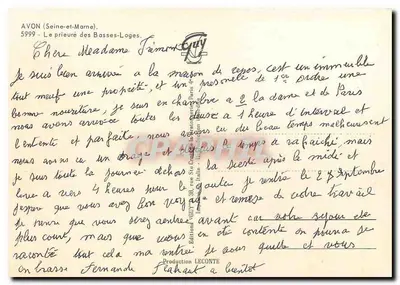 AVON (Seine-et-Marne).
5999 - Le prieuré des Basses-Loges.
Chère Meadame
Guy
Je suis bien arrivée a la maison de repos, c'est un immeuble
tout neuf une propreté, et un presonelle de 1er Ordre une
bonne nouriture, je suis en chambre a 2 la dame et de Paris
nous avons arrivée toutes les deuse a 1 heure d'interval et
l'entente et parfaite nous avons eu du beau temps malheureusement
nous avons eu un orage et le temps a rafraichi, mais
je suis toute la journée dehors la sieste après le midi et
vers 4 heures je rentre le 28 Septembre
j'espère que vous avez Bon voyage et remise de votre travail
je pense que vous serez rentrée avant car votre sejour et
plus court, mais que vous en ete contente on poura se
raconté tout cela ma rentrée je vous quitte et vous
embrasse Fernande a bientot
Production LECONTE